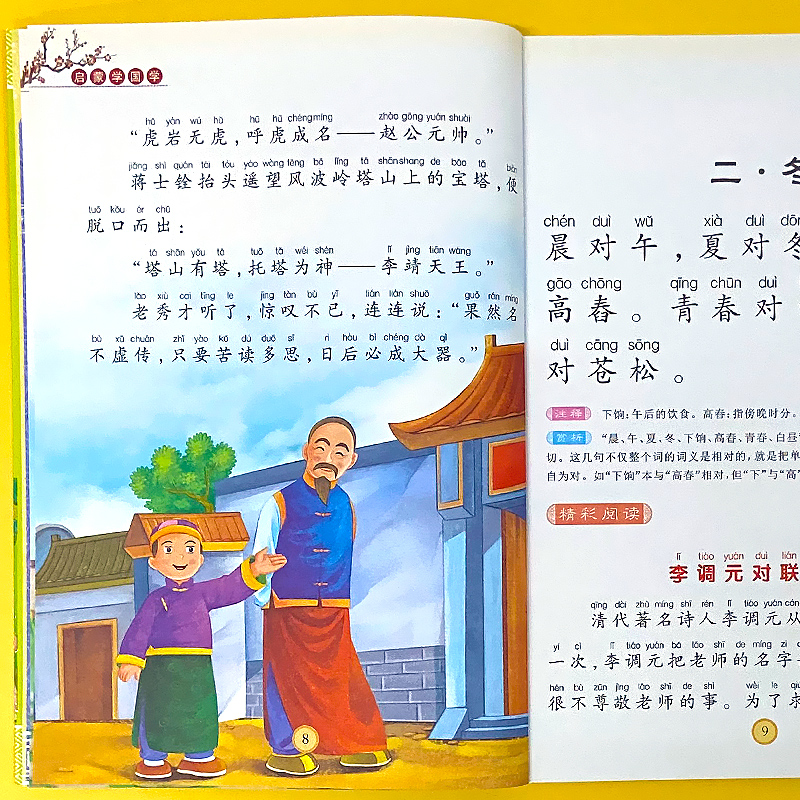 启蒙学国学
hǔ yán wú hǔ hū hǔ chéng míng zhào gōng yuán shuài
“虎岩无虎，呼虎成名——赵公元帅。”
jiǎng shì quán tái tóu yáo wàng fēng bō lǐng tǎ shān shang de bǎo tǎ biàn
蒋士铨抬头遥望风波岭塔山上的宝塔，便
tuō kǒu ér chū
脱口而出：
tǎ shān yǒu tǎ tuō tǎ wéi shén lǐ jìng tiān wáng
“塔山有塔，托塔为神——李靖天王。”
lǎo xiù cai tīng le jīng tàn bù yǐ lián lián shuō guǒ rán míng
老秀才听了，惊叹不已，连连说：“果然名
bù xū chuán zhǐ yào kǔ dú duō sī rì hòu bì chéng dà qì
不虚传，只要苦读多思，日后必成大器。”
8
二·冬
chén duì wǔ xià duì dōng
晨对午，夏对冬
gāo chōng qīng chūn duì
高舂。青春对
duì cāng sōng
对苍松。
注释 下饷：午后的饮食。高舂：指傍晚时分。
赏析 “晨、午、夏、冬、下饷、高舂、青春、白昼”
切。这几句不仅整个词的词义是相对的，就是把单
自为对。如“下饷”本与“高舂”相对，但“下”与“高”
精彩阅读
lǐ tiáo yuán duì lián
李调元对联
qīng dài zhù míng shī rén lǐ tiáo yuán cóng
清代著名诗人李调元从
yí cì lǐ tiáo yuán bǎ lǎo shī de míng zi
一次，李调元把老师的名字
hěn bù zūn jìng lǎo shī de shì wèi le qiú
很不尊敬老师的事。为了求
9